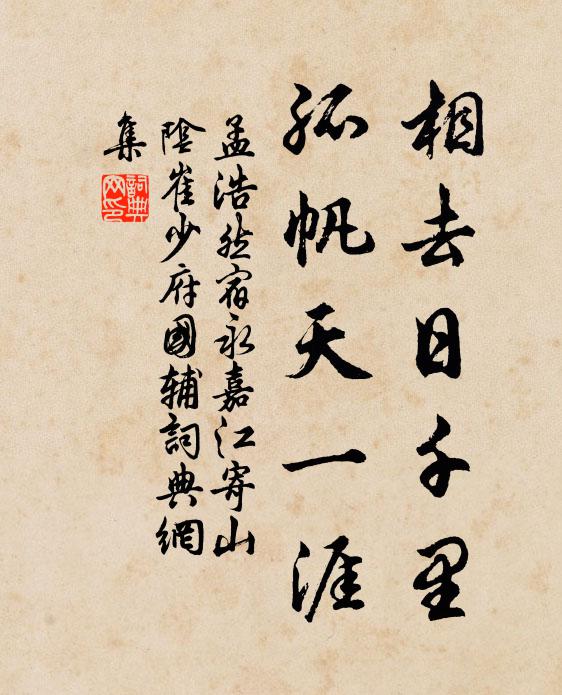 相去日千里
孤帆天一涯
孟浩然宿永嘉江寄山
陰崔少府國輔詞典網
集
詞典
网印